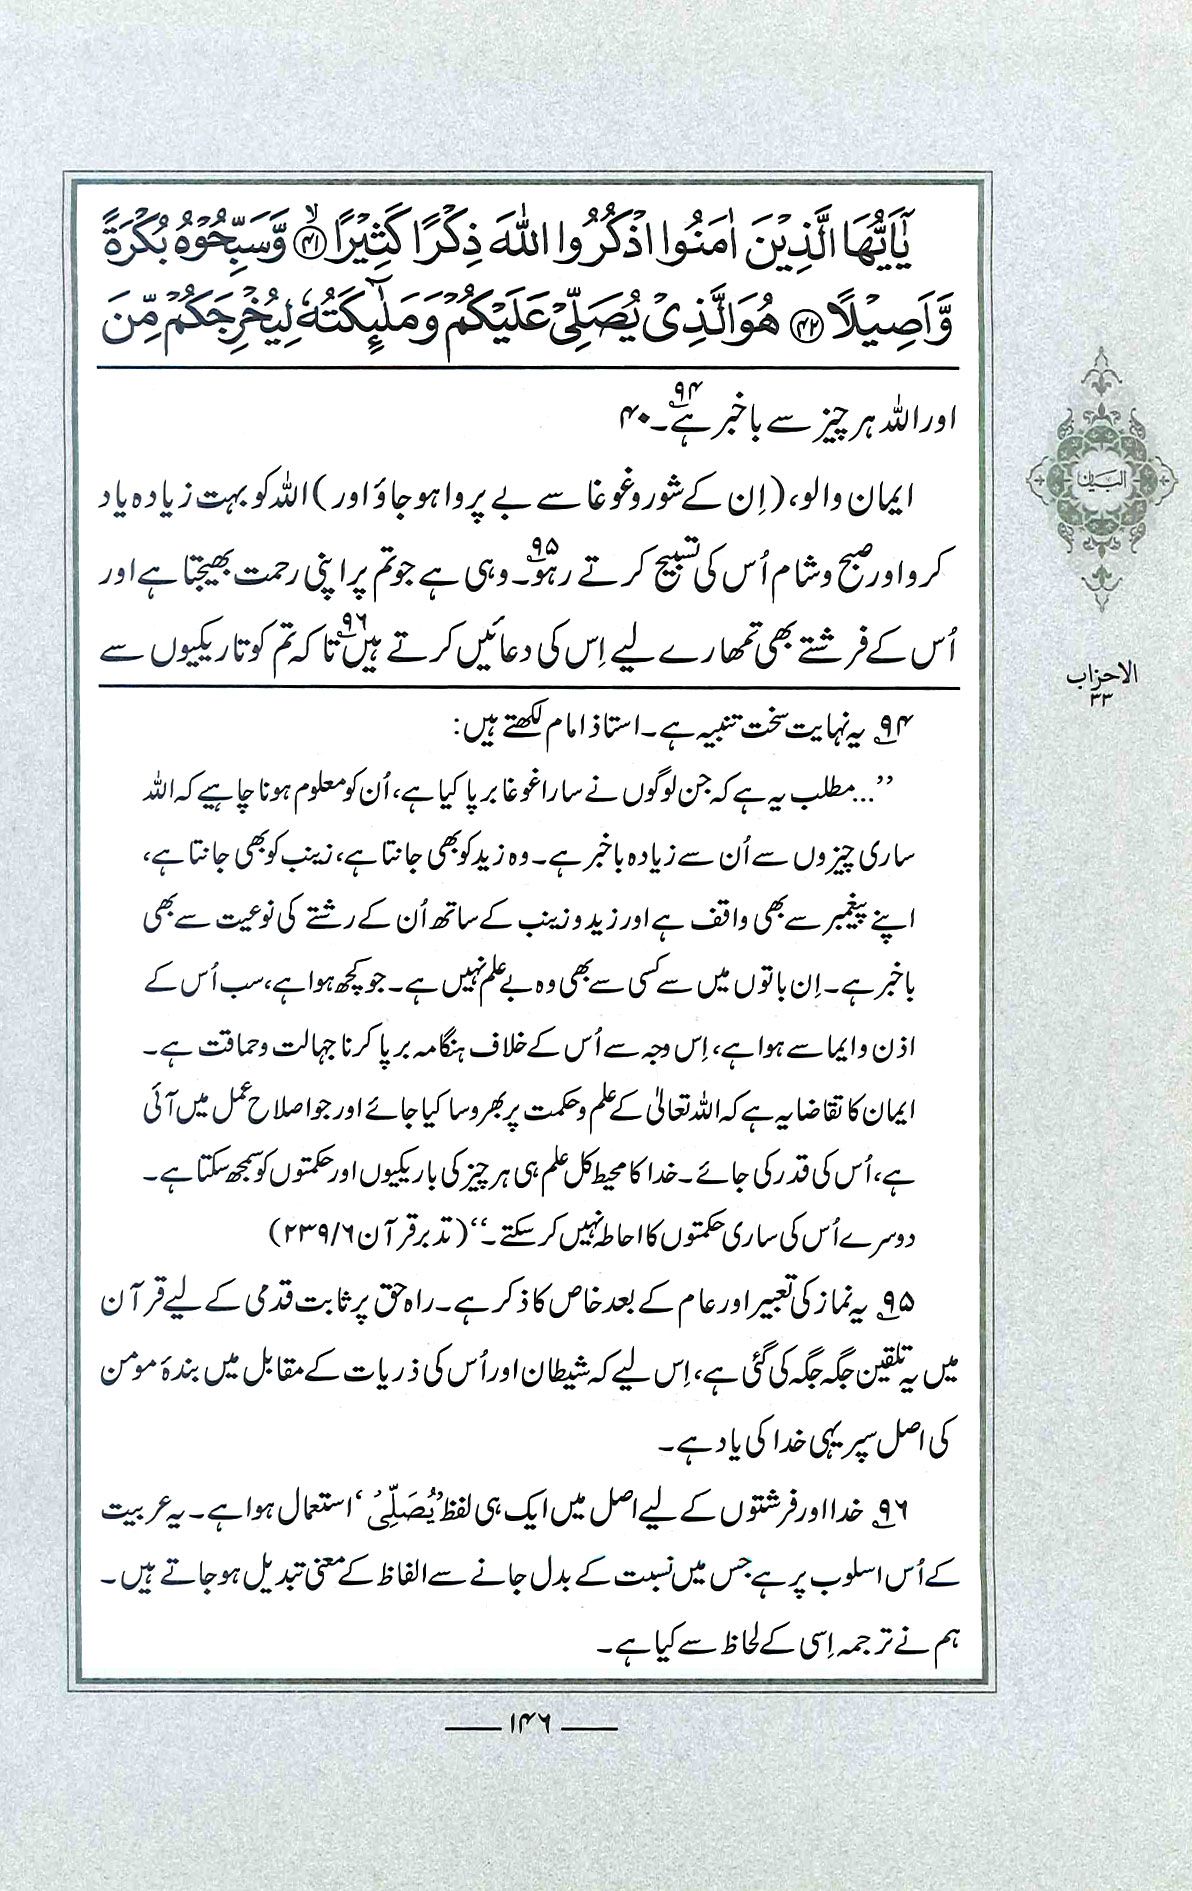 يٰٓاَيُّهَا الَّذِيْنَ اٰمَنُوا اذْكُرُوا اللّٰهَ ذِكْرًا كَثِيْرًا ﴿۴۱﴾ۙ وَّسَبِّحُوْهُ بُكْرَةً
وَّاَصِيْلًا ﴿۴۲﴾ هُوَ الَّذِيْ يُصَلِّيْ عَلَيْكُمْ وَمَلٰٓئِكَتُهٗ لِيُخْرِجَكُمْ مِّنَ
اور اللہ ہر چیز سے باخبر ہے۔۹۴ ۴۰
ایمان والو، (اِن کے شور و غوغا سے بے پروا ہو جاؤ اور) اللہ کو بہت زیادہ یاد
کرو اور صبح و شام اُس کی تسبیح کرتے رہو۔۹۵ وہی ہے جو تم پر اپنی رحمت بھیجتا ہے اور
اُس کے فرشتے بھی تمھارے لیے اِس کی دعائیں کرتے ہیں۹۶ تاکہ تم کو تاریکیوں سے
البیان
الاحزاب
۳۳
۹۴ یہ نہایت سخت تنبیہ ہے۔ استاذ امام لکھتے ہیں:
”...مطلب یہ ہے کہ جن لوگوں نے سارا غوغا برپا کیا ہے، اُن کو معلوم ہونا چاہیے کہ اللہ
ساری چیزوں سے اُن سے زیادہ باخبر ہے۔ وہ زید کو بھی جانتا ہے، زینب کو بھی جانتا ہے،
اپنے پیغمبر سے بھی واقف ہے اور زید و زینب کے ساتھ اُن کے رشتے کی نوعیت سے بھی
باخبر ہے۔ اِن باتوں میں سے کسی سے بھی وہ بے علم نہیں ہے۔ جو کچھ ہوا ہے، سب اُس کے
اذن و ایما سے ہوا ہے، اِس وجہ سے اُس کے خلاف ہنگامہ برپا کرنا جہالت و حماقت ہے۔
ایمان کا تقاضا یہ ہے کہ اللہ تعالیٰ کے علم و حکمت پر بھروسا کیا جائے اور جو اصلاح عمل میں آئی
ہے، اُس کی قدر کی جائے۔ خدا کا محیط کل علم ہی ہر چیز کی باریکیوں اور حکمتوں کو سمجھ سکتا ہے۔
دوسرے اُس کی ساری حکمتوں کا احاطہ نہیں کر سکتے۔“ (تدبر قرآن ۶/۲۳۹)
۹۵ یہ نماز کی تعبیر اور عام کے بعد خاص کا ذکر ہے۔ راہ حق پر ثابت قدمی کے لیے قرآن
میں یہ تلقین جگہ جگہ کی گئی ہے، اِس لیے کہ شیطان اور اُس کی ذریات کے مقابل میں بندۂ مومن
کی اصل سپر یہی خدا کی یاد ہے۔
۹۶ خدا اور فرشتوں کے لیے اصل میں ایک ہی لفظ ’یُصَلِّیْ‘ استعمال ہوا ہے۔ یہ عربیت
کے اُس اسلوب پر ہے جس میں نسبت کے بدل جانے سے الفاظ کے معنی تبدیل ہو جاتے ہیں۔
ہم نے ترجمہ اِسی کے لحاظ سے کیا ہے۔
۱۴۶